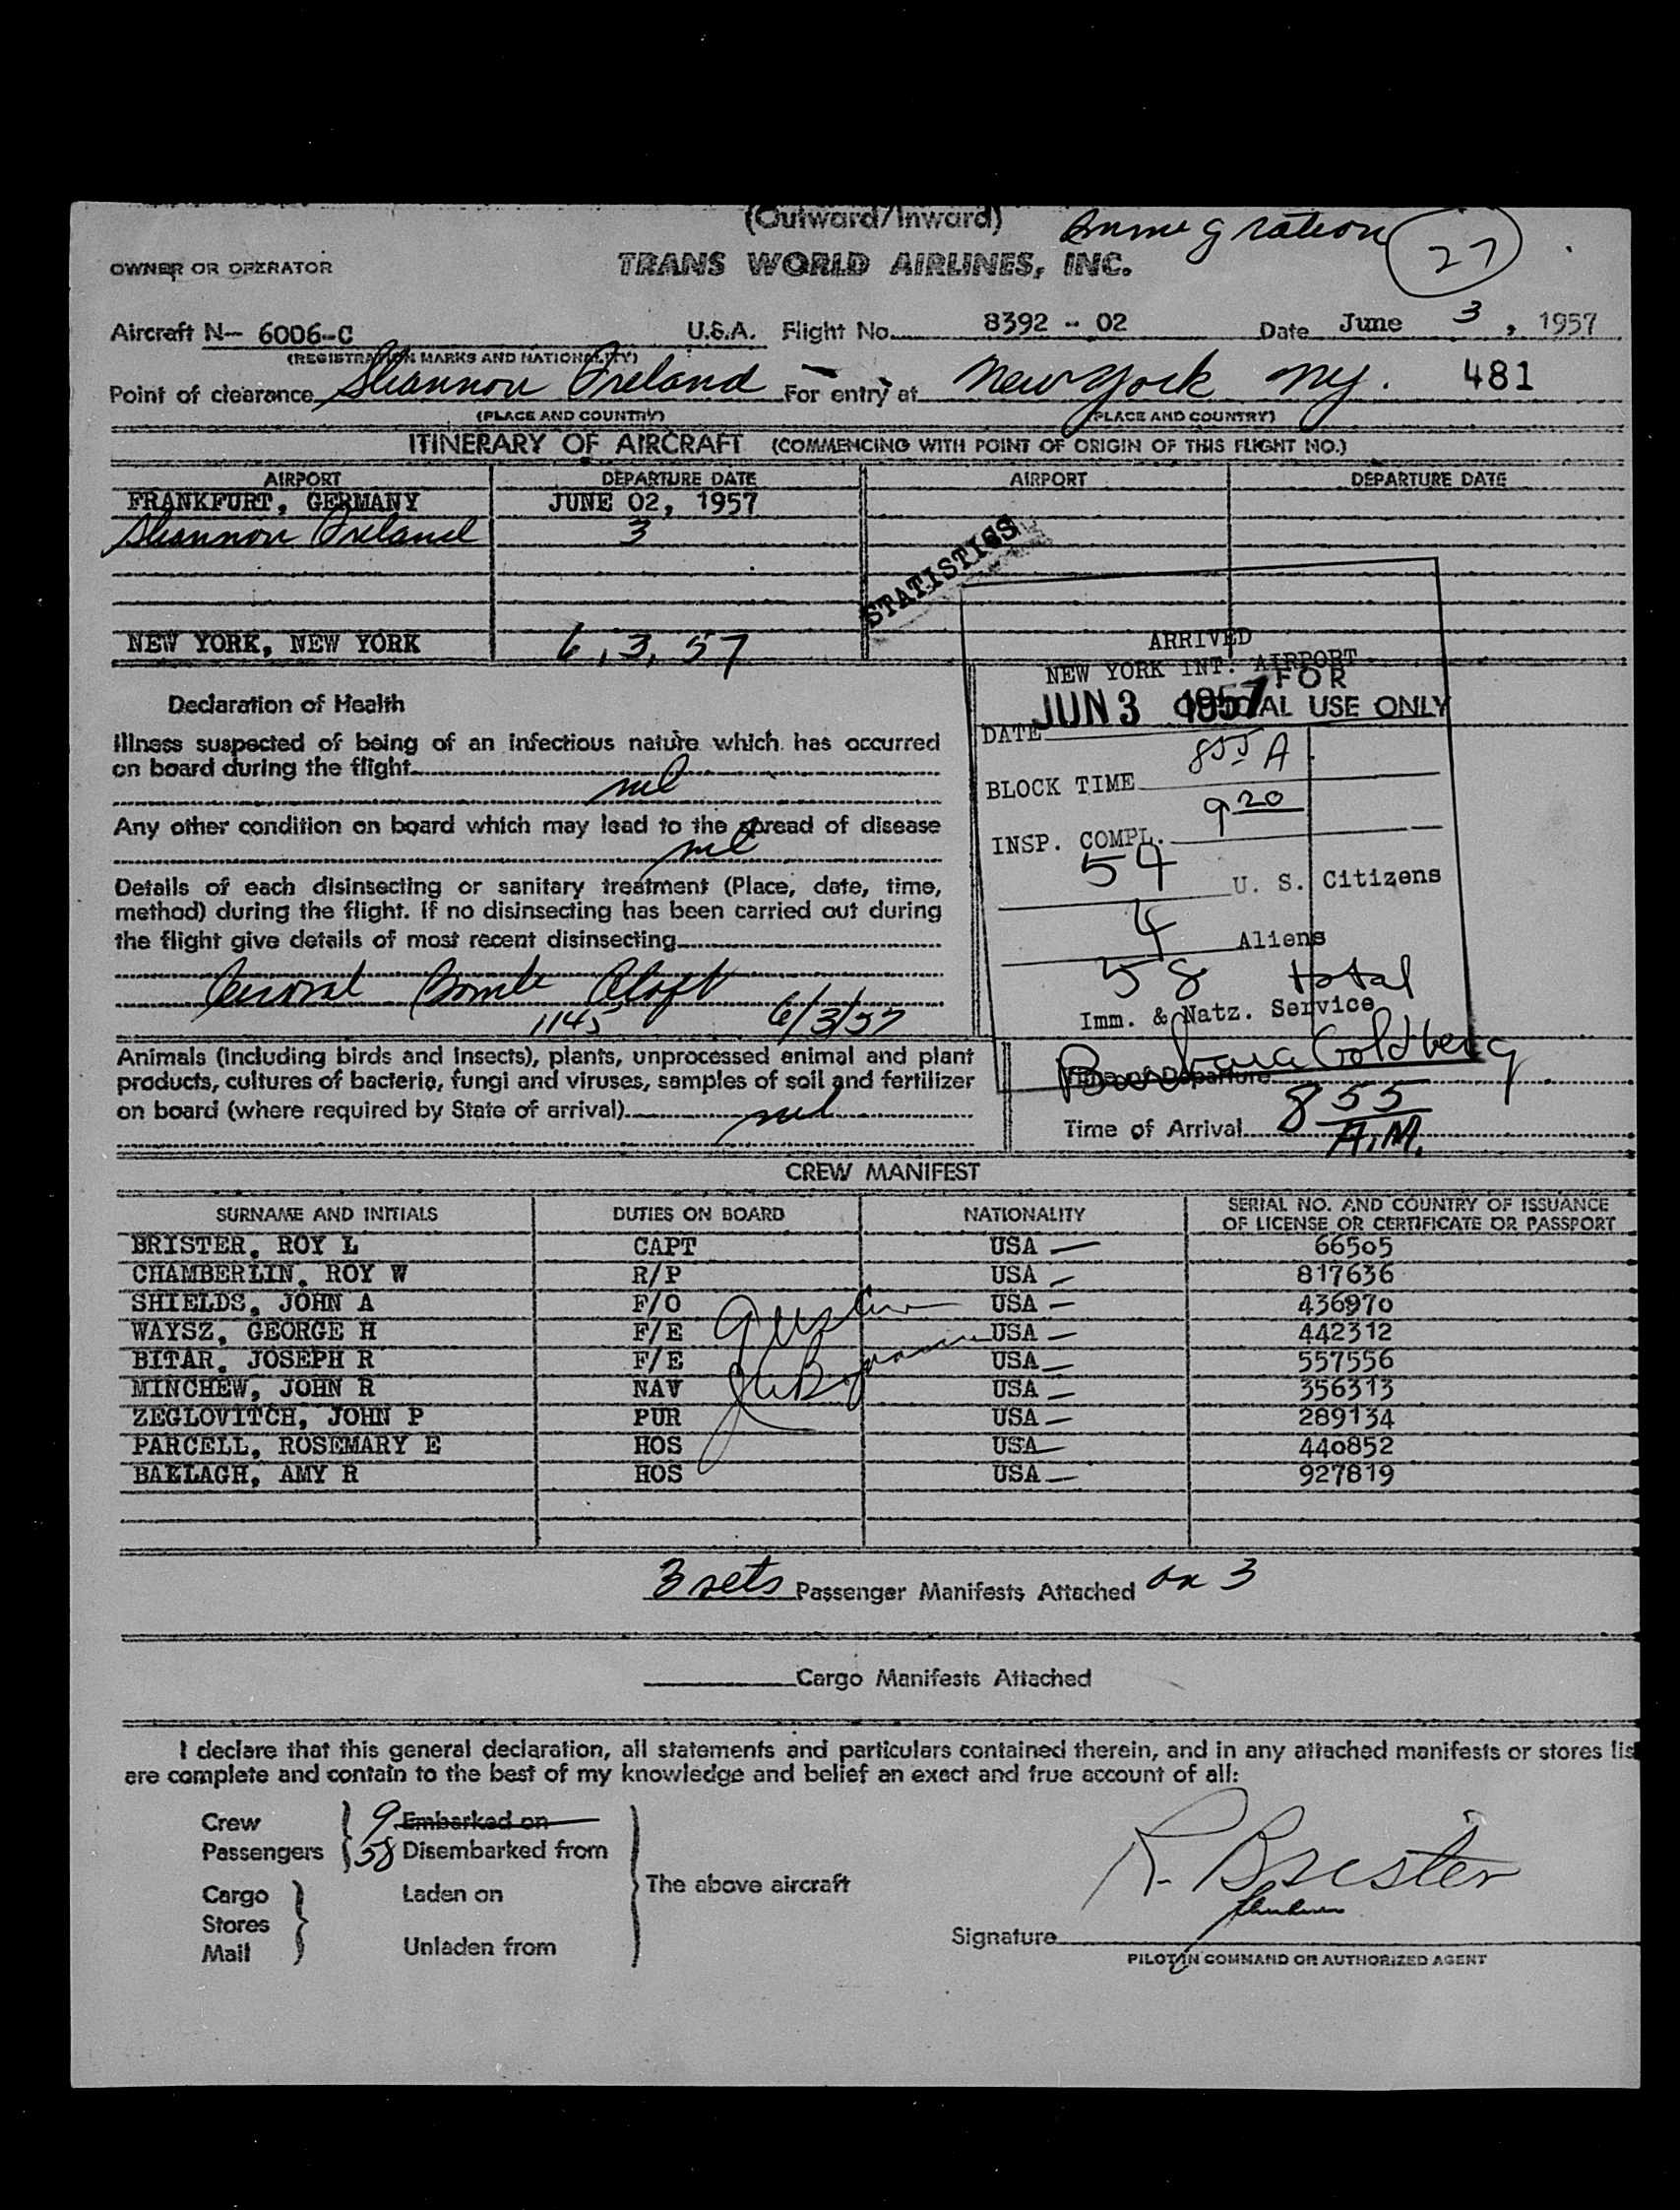 (Outward/Inward) Immigration 27
OWNER OR OPERATOR TRANS WORLD AIRLINES, INC.
Aircraft N- 6006-C U.S.A. Flight No. 8392 - 02 Date June 3, 1957
(REGISTRATION MARKS AND NATIONALITY)
Point of clearance Shannon Ireland For entry at New York NY. 481
(PLACE AND COUNTRY) (PLACE AND COUNTRY)
ITINERARY OF AIRCRAFT (COMMENCING WITH POINT OF ORIGIN OF THIS FLIGHT NO.)
AIRPORT DEPARTURE DATE AIRPORT DEPARTURE DATE
FRANKFURT, GERMANY JUNE 02, 1957
Shannon Ireland 3
STATISTICS
NEW YORK, NEW YORK 6, 3, 57
ARRIVED
NEW YORK INT. AIRPORT
FOR
OFFICIAL USE ONLY
DATE JUN 3 1957
BLOCK TIME 855 A
INSP. COMPL. 920
54 U. S. Citizens
4 Aliens
58 total
Imm. & Natz. Service
Barbara Goldberg
Declaration of Health
Illness suspected of being of an infectious nature which has occurred
on board during the flight
nil
Any other condition on board which may lead to the spread of disease
nil
Details of each disinsecting or sanitary treatment (Place, date, time,
method) during the flight. If no disinsecting has been carried out during
the flight give details of most recent disinsecting
Aerosol Bomb Aloft
1145 6/3/57
Animals (including birds and insects), plants, unprocessed animal and plant
products, cultures of bacteria, fungi and viruses, samples of soil and fertilizer
on board (where required by State of arrival) nil
Time of Departure
Time of Arrival 855 A.M.
CREW MANIFEST
SURNAME AND INITIALS DUTIES ON BOARD NATIONALITY SERIAL NO. AND COUNTRY OF ISSUANCE
OF LICENSE OR CERTIFICATE OR PASSPORT
BRISTER, ROY L CAPT USA 66505
CHAMBERLIN, ROY W R/P USA 817636
SHIELDS, JOHN A F/O USA 436970
WAYSZ, GEORGE H F/E USA 442312
BITAR, JOSEPH R F/E USA 557556
MINCHEW, JOHN R NAV USA 356313
ZEGLOVITCH, JOHN P PUR USA 289134
PARCELL, ROSEMARY E HOS USA 440852
BALLAGH, AMY R HOS USA 927819
3 sets Passenger Manifests Attached on 3
Cargo Manifests Attached
I declare that this general declaration, all statements and particulars contained therein, and in any attached manifests or stores lis
are complete and contain to the best of my knowledge and belief an exact and true account of all:
Crew 9 Embarked on
Passengers 58 Disembarked from
The above aircraft
Cargo Laden on
Stores
Mail Unladen from
R. Brister
Signature
PILOT IN COMMAND OR AUTHORIZED AGENT